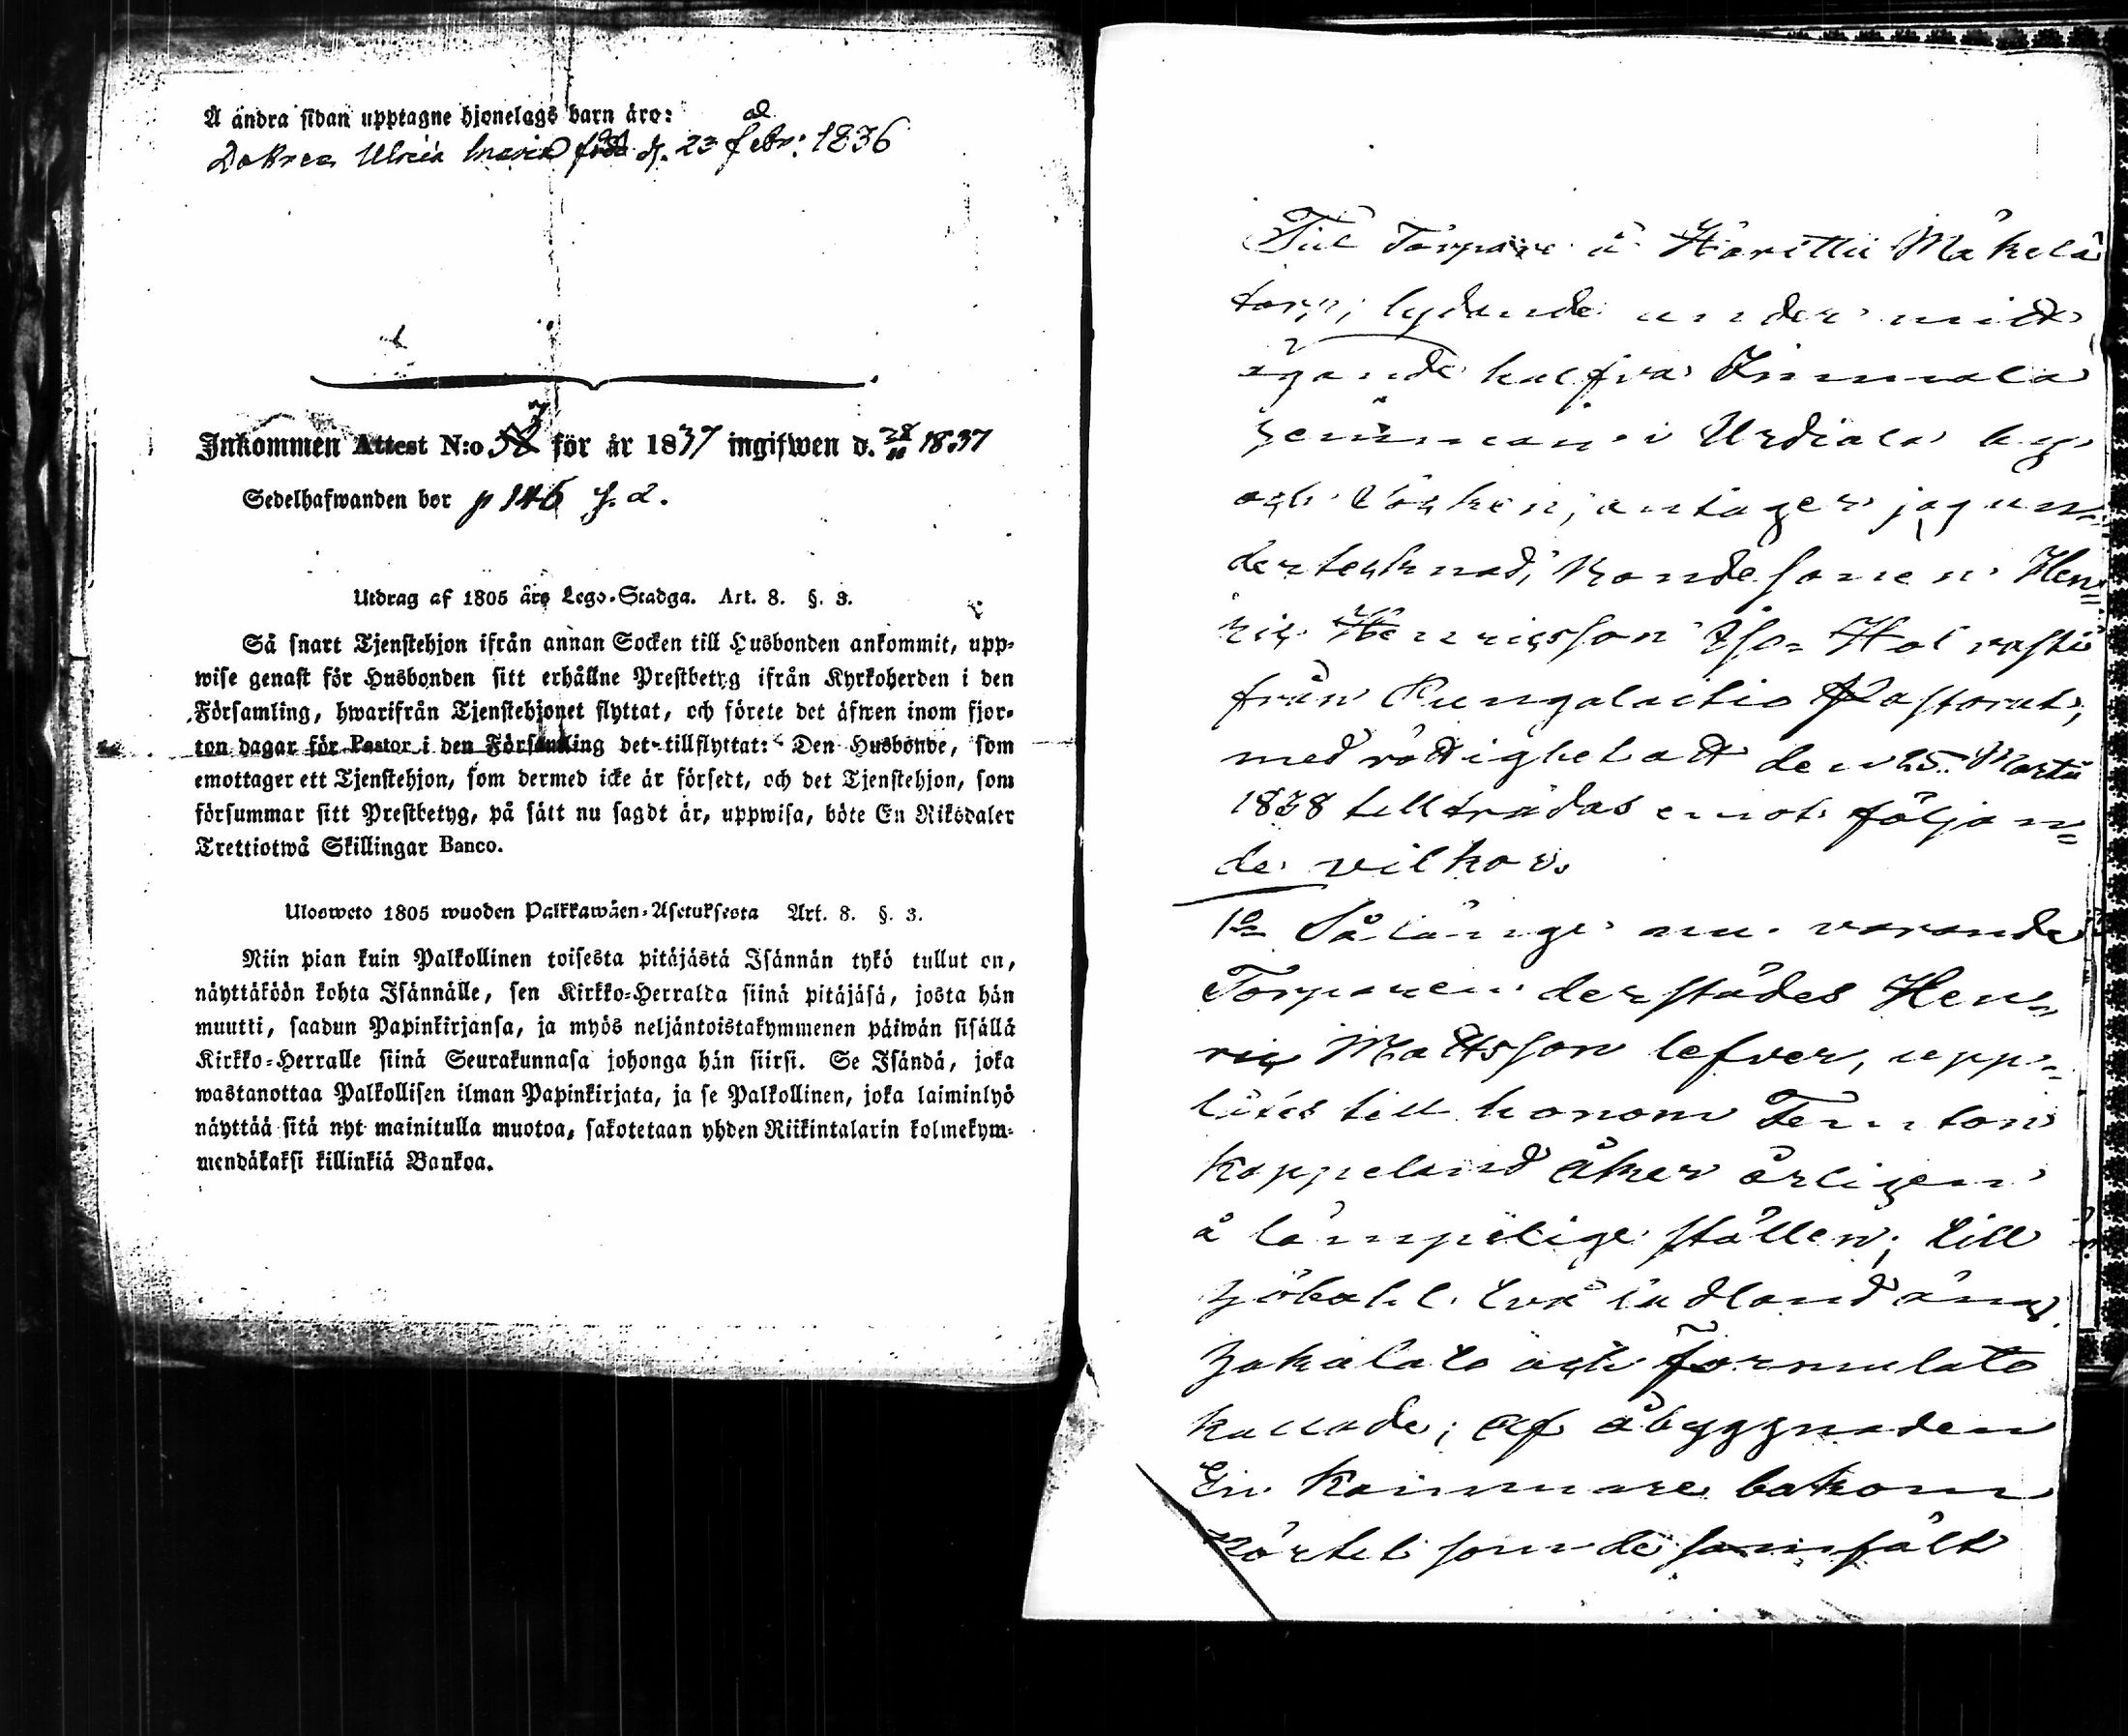 Å andra sidan upptagne hjonelags barn äro:
Ulrica Maria född d. 23 febr: 1836
Inkommen Attest N:o 57 för år 1837 ingifwen d. 28/11 1837
Sedelhafwanden bor p 146 f. d.
Utdrag af 1805 års Lego-Stadga. Art. 8. §. 3.
Så snart Tjenstehjon ifrån annan Socken till Husbonden ankommit, upp-
wise genast för Husbonden sitt erhållne Prestbetyg ifrån Kyrkoherden i den
Församling, hwarifrån Tjenstehjonet flyttat, och förete det äfwen inom fjor-
ton dagar för Pastor i den Församling det tillflyttat: Den Husbonde, som
emottager ett Tjenstehjon, som dermed icke är försedt, och det Tjenstehjon, som
försummar sitt Prestbetyg, på sätt nu sagdt är, uppwisa, böte En Riksdaler
Trettiotwå Skillingar Banco.
Ulosweto 1805 wuoden Palkkawäen-Asetuksesta Art. 8. §. 3.
Niin pian kuin Palkollinen toisesta pitäjästä Isännän tykö tullut on,
näyttäköön kohta Isännälle, sen Kirkko-Herralda siinä pitäjäsä, josta hän
muutti, saadun Papinkirjansa, ja myös neljäntoistakymmenen päiwän sisällä
Kirkko-Herralle siinä Seurakunnasa johonga hän siirsi. Se Isändä, joka
wastanottaa Palkollisen ilman Papinkirjata, ja se Palkollinen, joka laiminlyö
näyttää sitä nyt mainitulla muotoa, sakotetaan yhden Riikintalarin kolmekym-
mendäkaksi killinkiä Bankoa.
Till Torpare å Harittu Mäkelä
torp, lydande under mitt
ägande halfva Immala
hemman i Urdiala by
och Socken, antager jag un-
dertecknad, Bondesonen Hen-
ric Henricsson Iso-Hol vasti
från Kungalaitio Pastorat,
med rättighet att den 25 Martii
1838 tillträdas emot följan-
de vilkor.
1o Så länge nu varande
Torparen derstädes Hen-
ric Mattsson lefver, upp-
låtes till honom Femton
Kappeland åker årligen
å lämpelige ställen, till
höbohl två ladland äng
och
kallade; af åbyggnaden
En Kammare bakom
Pörtet som de samfält